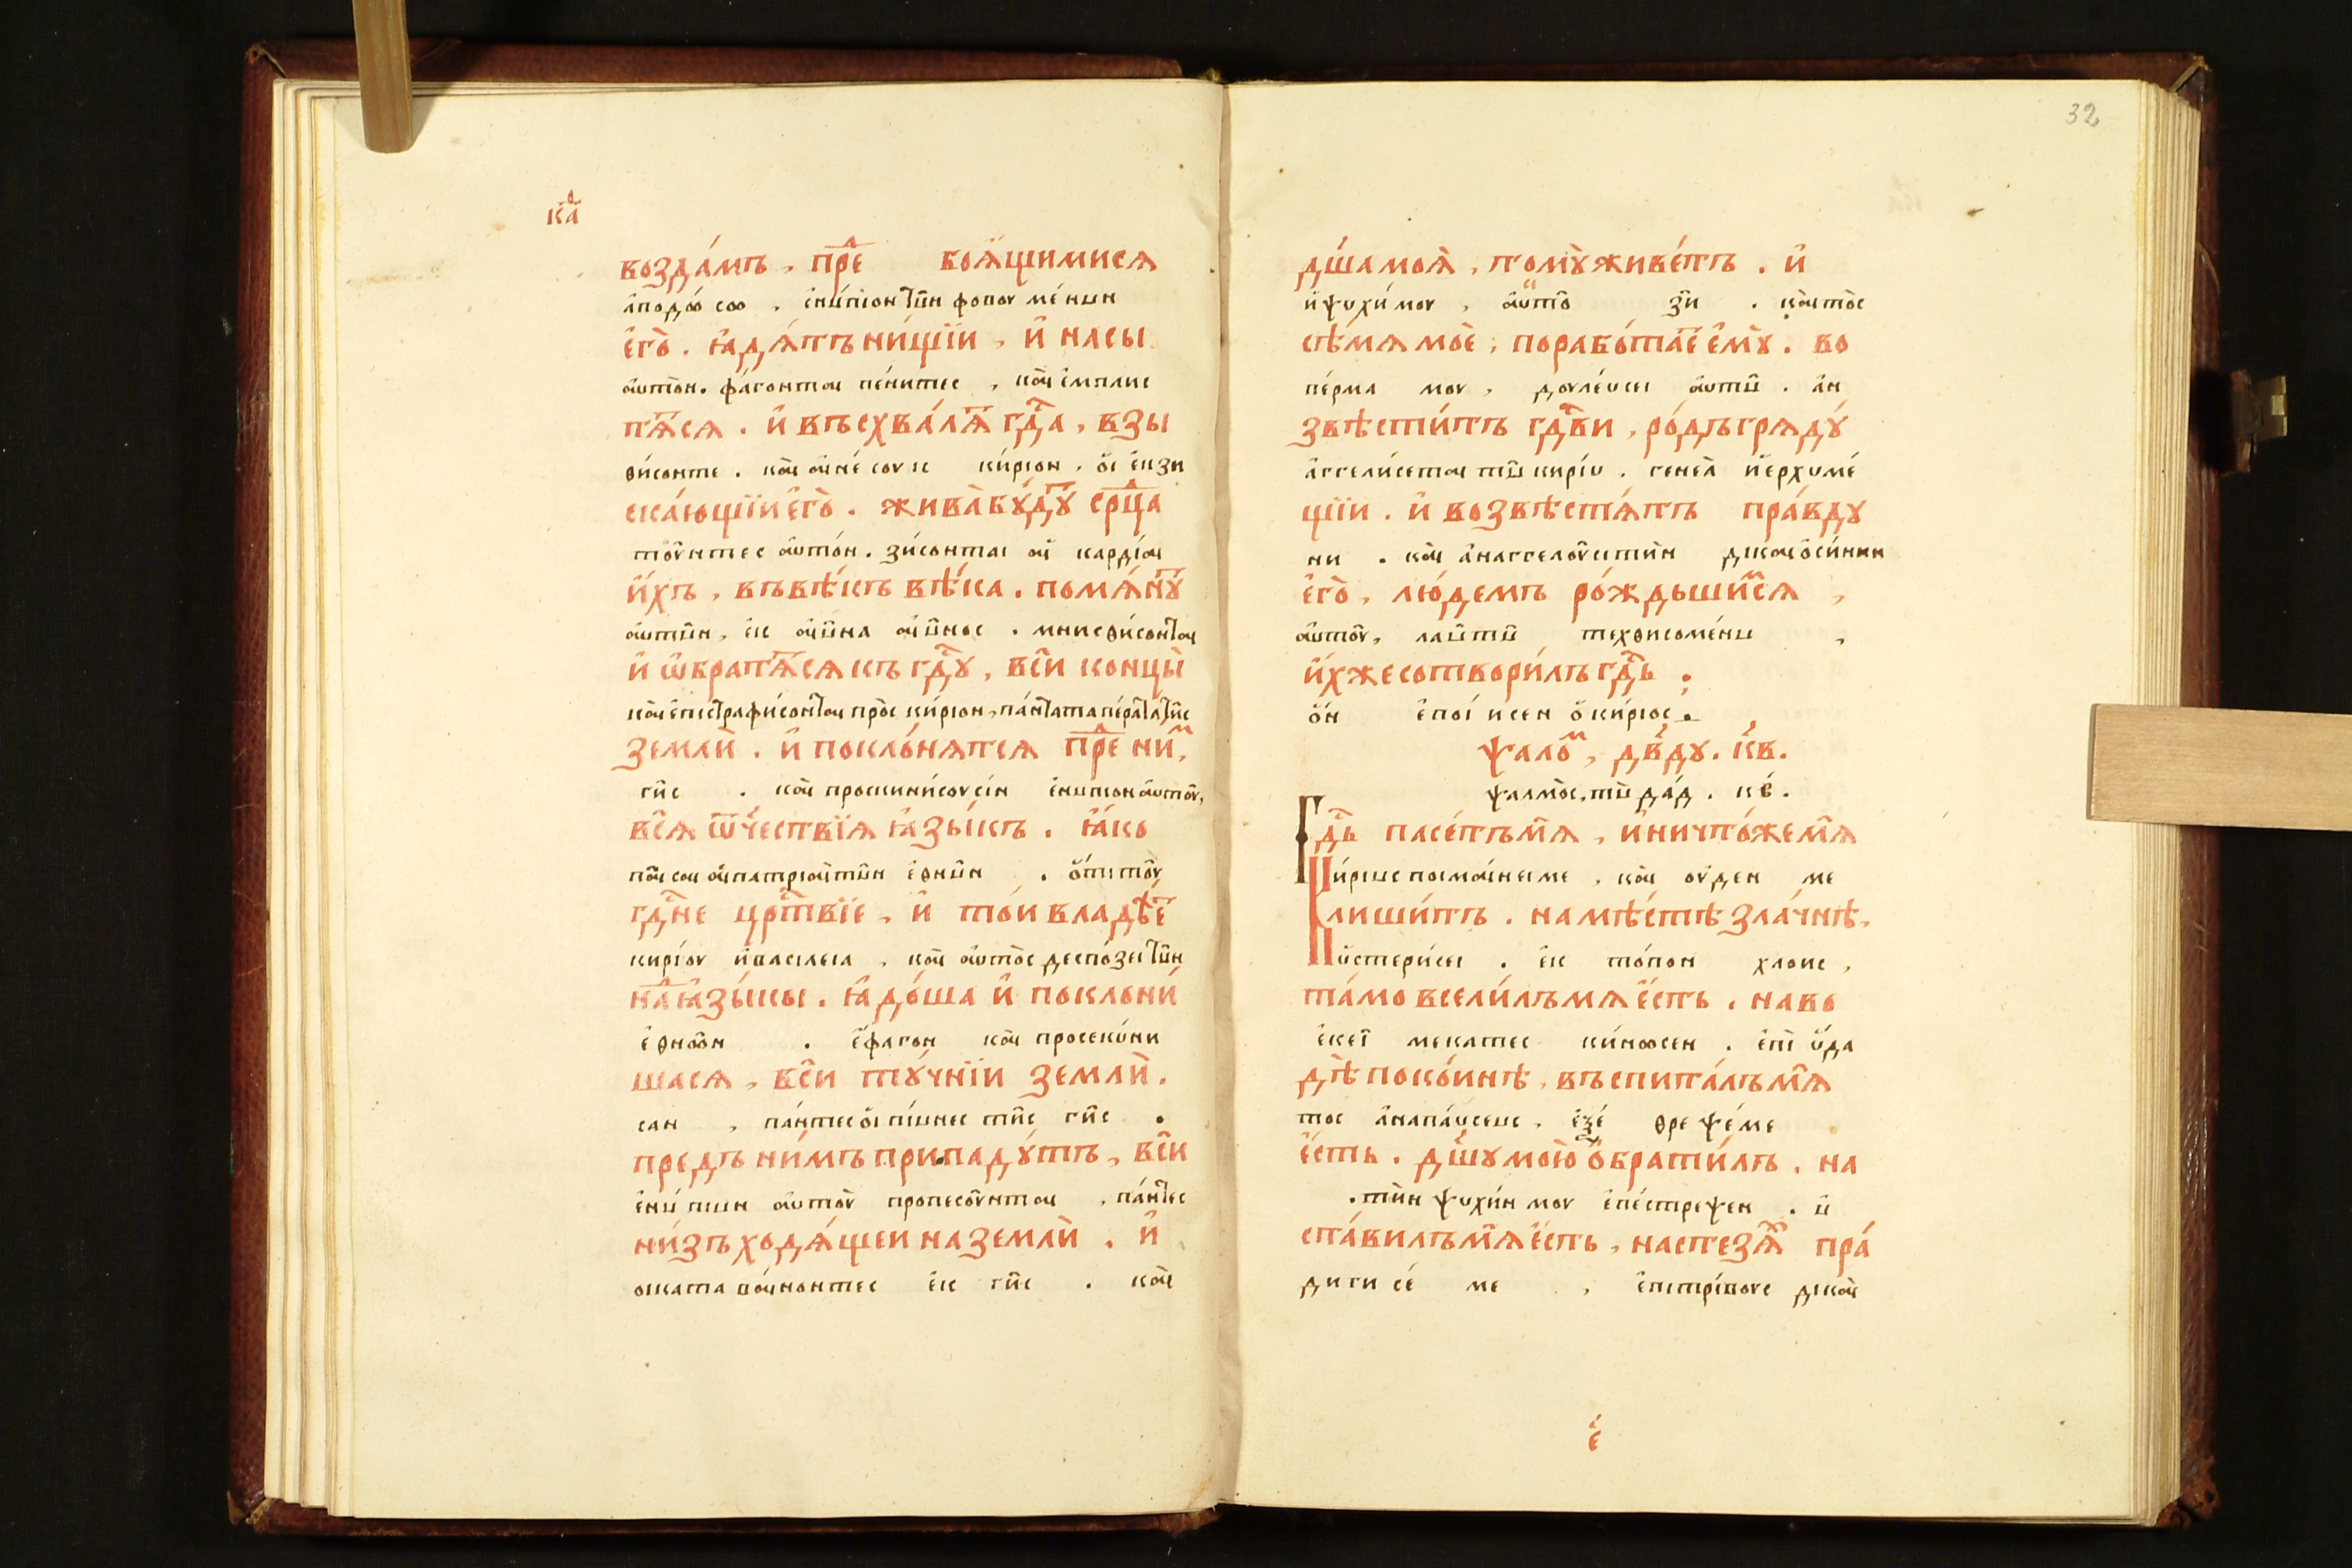 к҃а
воздамъ, пре боѧщимисѧ
аподѡсѡ, енѡпион тѡн фовоυ менѡн
его. ꙗдѧтъ нищїи, и насы
аυтон. фагонтаи пенитес, каи емплис
тѧсѧ. и въсхвалѧ гда, взы
ѳисонте. каи аинесоυ ис кирион, ои екзи
скающїи его. жива будꙋ срца
тоυнтес аυтон. зисонтаι аи кардїаι
ихъ, въвѣкъ вѣка. помѧнꙋ
аυтѡн, еис аιѡна аιѡнос. мнисѳисонтаι
и ѡбратѧсѧ къ гдꙋ, вси концы
каι епистрафисонтаι прос кирιон, панта та перата тис
земли. и поклонѧтсѧ пре ним,
гис. каι проскинисоυсιн енѡпион аυтоυ,
всѧ ѿчествїѧ ꙗзыкъ. ꙗко
пасаι аι патриаι тѡн еѳнѡн. оти тоυ
гдне цртвїе, и тои владѣе
кирιоυ и василеιа, каι аυтос деспозеι тѡн
на ꙗзыки. ꙗдоша и поклони
еѳнѡн. ефагон каι просекυни
шасѧ, вси тучнїи земли.
сан, пантес оι пιѡнес тис гис.
предъ нимъ припадутъ, вси
енѡпιѡн аυтоυ пропесоυнтаι, пантес
низъходѧщеи на земли. и
οι катаваιнонтес еис гис. каι
32
дша моѧ, томꙋ живетъ. и
и ψυхи моυ, аυто зи. каι тос
сѣмѧ мое, поработае емꙋ. во
перма моυ, доυлевсеι аυтѡ. ан
звѣститъ гдви, родъ грѧдꙋ
аггелисетаι тѡ кирιѡ. генеа и ерхоме
щїи. и возвѣстѧтъ правдꙋ
ни. каι анаггелоυси тин дικаιосинин
его, людемъ рождьшимсѧ,
аυтоυ, лаѡ тѡ техѳисоменѡ,
ихже сотворилъ гдь.
он епоιисен о кирιос.
ѱалом, двдꙋ. кв.
ѱалмос, тѡ дад. кв.
Гдь пасетъ мѧ, и ничтоже мѧ
Кирιѡс поιмаιнеι ме, каι оυден ме
лишитъ. на мѣстѣ злачнѣ,
υстерисеι. еис топон хлоис,
тамо вселилъ мѧ есть. на во
екеι ме катес кинѡсен. епι υда
дѣ покоинѣ, въспиталъ мѧ
тос анапаυсеѡс, еѯе ѳреѱе ме
есть. дшꙋ мою обратилъ. на
тин ѱυхин моυ епестреѱен. ѡ
ставилъ мѧ есть, на стезѧ пра
диги се ме, епι трιвоυс дικаι
е